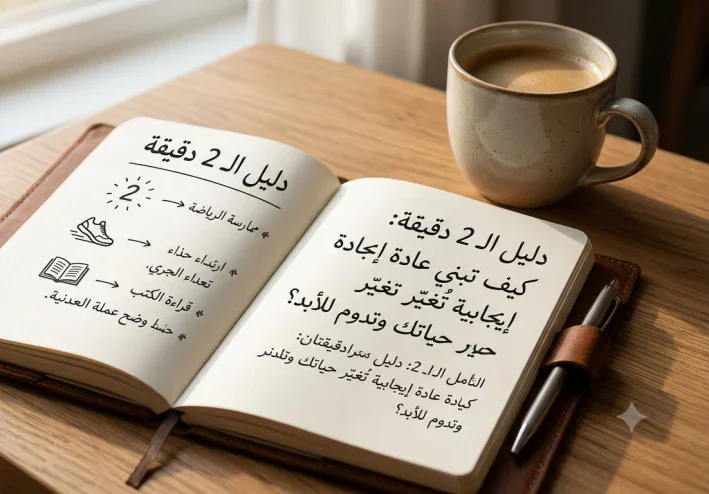 دليل الـ 2 دقيقة
2
* ممارسة الرياضة
* ارتداء حذاء
تعداء الجري.
* قراءة الكتب
* حفظ وضع عملة العدنية.
دليل الـ 2 دقيقة:
كيف تبني عادة إيجادة
إيجابية تُغيّر تغيّر
حياتك وتدوم للأبد؟
التأمل الـ 2: دليل
عادة إيجابية تُغيّر حياتك
وتدوم للأبد؟